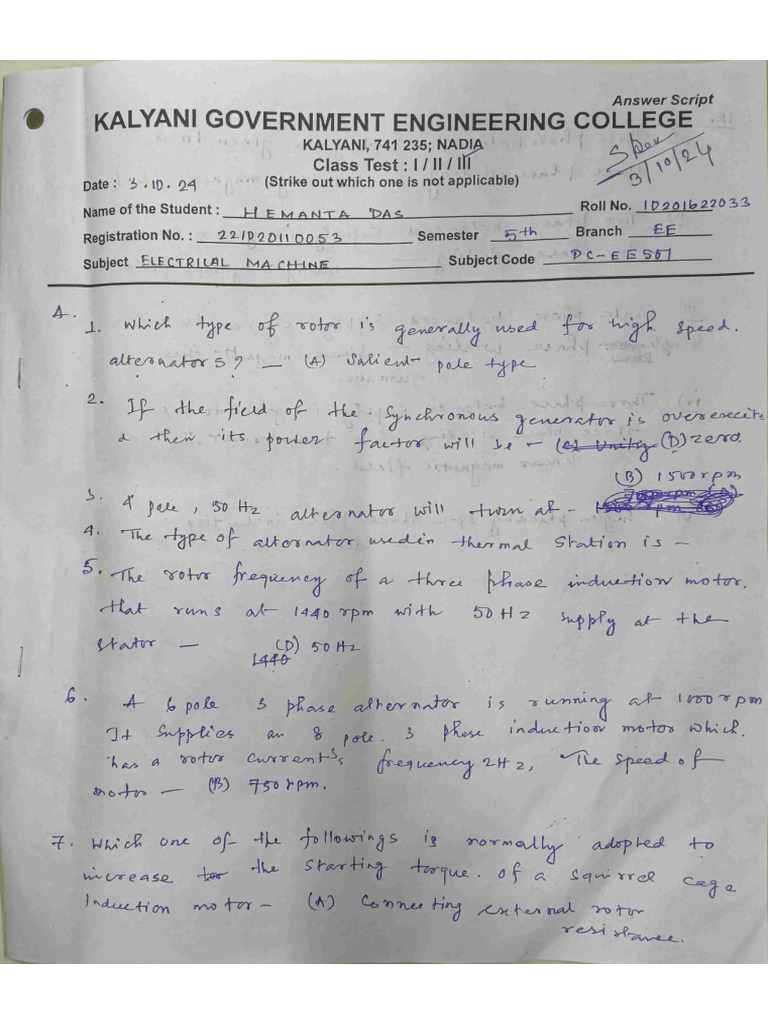 Answer Script
KALYANI GOVERNMENT ENGINEERING COLLEGE
KALYANI, 741 235; NADIA
Class Test : I / II / III
(Strike out which one is not applicable)
3/10/24
Date : 3.10.24
Name of the Student : HEMANTA DAS Roll No. 10201622033
Registration No. : 221020110053 Semester 5th Branch EE
Subject ELECTRICAL MACHINE Subject Code PC-EE501
A.
1. Which type of rotor is generally used for high speed.
alternators? — (A) Salient pole type
2. If the field of the synchronous generator is overexcite
d then its power factor will be - (c) Unity (D) zero.
(B) 1500 rpm
3. 4 pole, 50 Hz alternator will turn at -
4. The type of alternator used in thermal Station is -
5. The rotor frequency of a three phase induction motor.
that runs at 1440 rpm with 50 Hz supply at the
stator — (D) 50 Hz
1440
6. A 6 pole 3 phase alternator is running at 1000 rpm
It supplies an 8 pole. 3 phase induction motor which.
has a rotor current's frequency 2Hz, The speed of
motor — (B) 750 rpm.
7. Which one of the followings is normally adopted to
increase to the starting torque. of a squirrel cage
Induction motor - (A) Connecting external rotor
resistance.